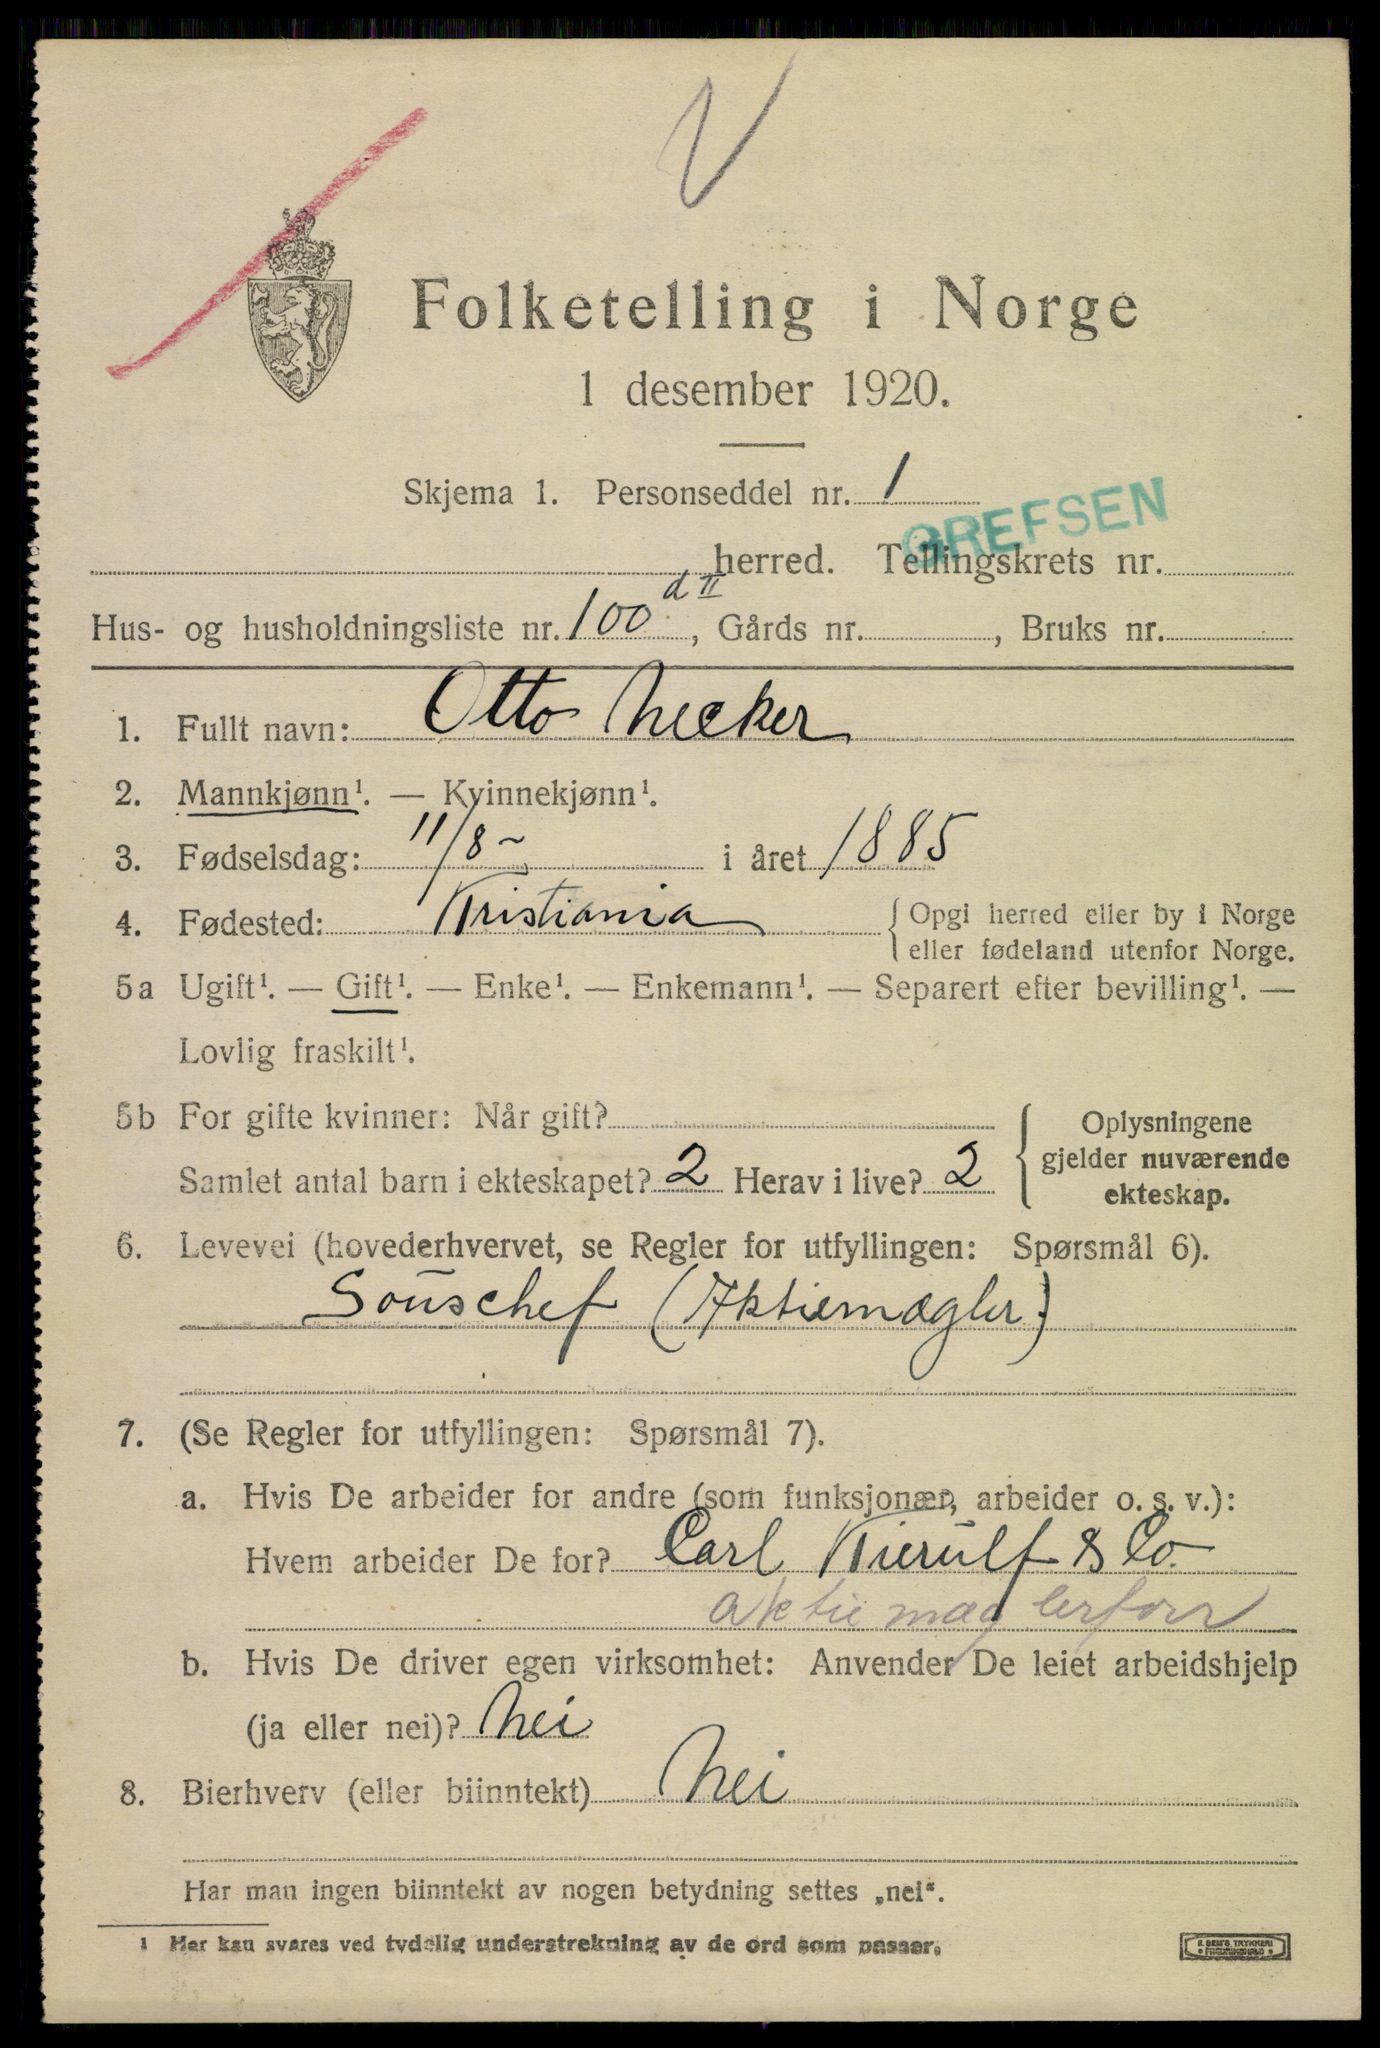 Folketelling i Norge
1 desember 1920.
Skjema 1. Personseddel nr. 1
GREFSEN
herred. Tellingskrets nr.
Hus- og husholdningsliste nr. 100 d II, Gårds nr. , Bruks nr.
1. Fullt navn: Otto Necker
2. Mannkjønn¹. — Kvinnekjønn¹.
3. Fødselsdag: 11/8- i året 1885
4. Fødested: Kristiania { Opgi herred eller by i Norge
eller fødeland utenfor Norge.
5a Ugift¹. — Gift¹. — Enke¹. — Enkemann¹. — Separert efter bevilling¹. —
Lovlig fraskilt¹.
5b For gifte kvinner: Når gift?
Samlet antal barn i ekteskapet? 2 Herav i live? 2
Oplysningene
gjelder nuværende
ekteskap.
6. Levevei (hovederhvervet, se Regler for utfyllingen: Spørsmål 6).
Souschef (Aktiemægler)
7. (Se Regler for utfyllingen: Spørsmål 7).
a. Hvis De arbeider for andre (som funksjonær, arbeider o. s. v.):
Hvem arbeider De for? Carl Kierulf & Co.
aktiemæglerforr
b. Hvis De driver egen virksomhet: Anvender De leiet arbeidshjelp
(ja eller nei)? Nei
8. Bierhverv (eller biinntekt) Nei
Har man ingen biinntekt av nogen betydning settes „nei“.
1 Her kan svares ved tydelig understrekning av de ord som passer.